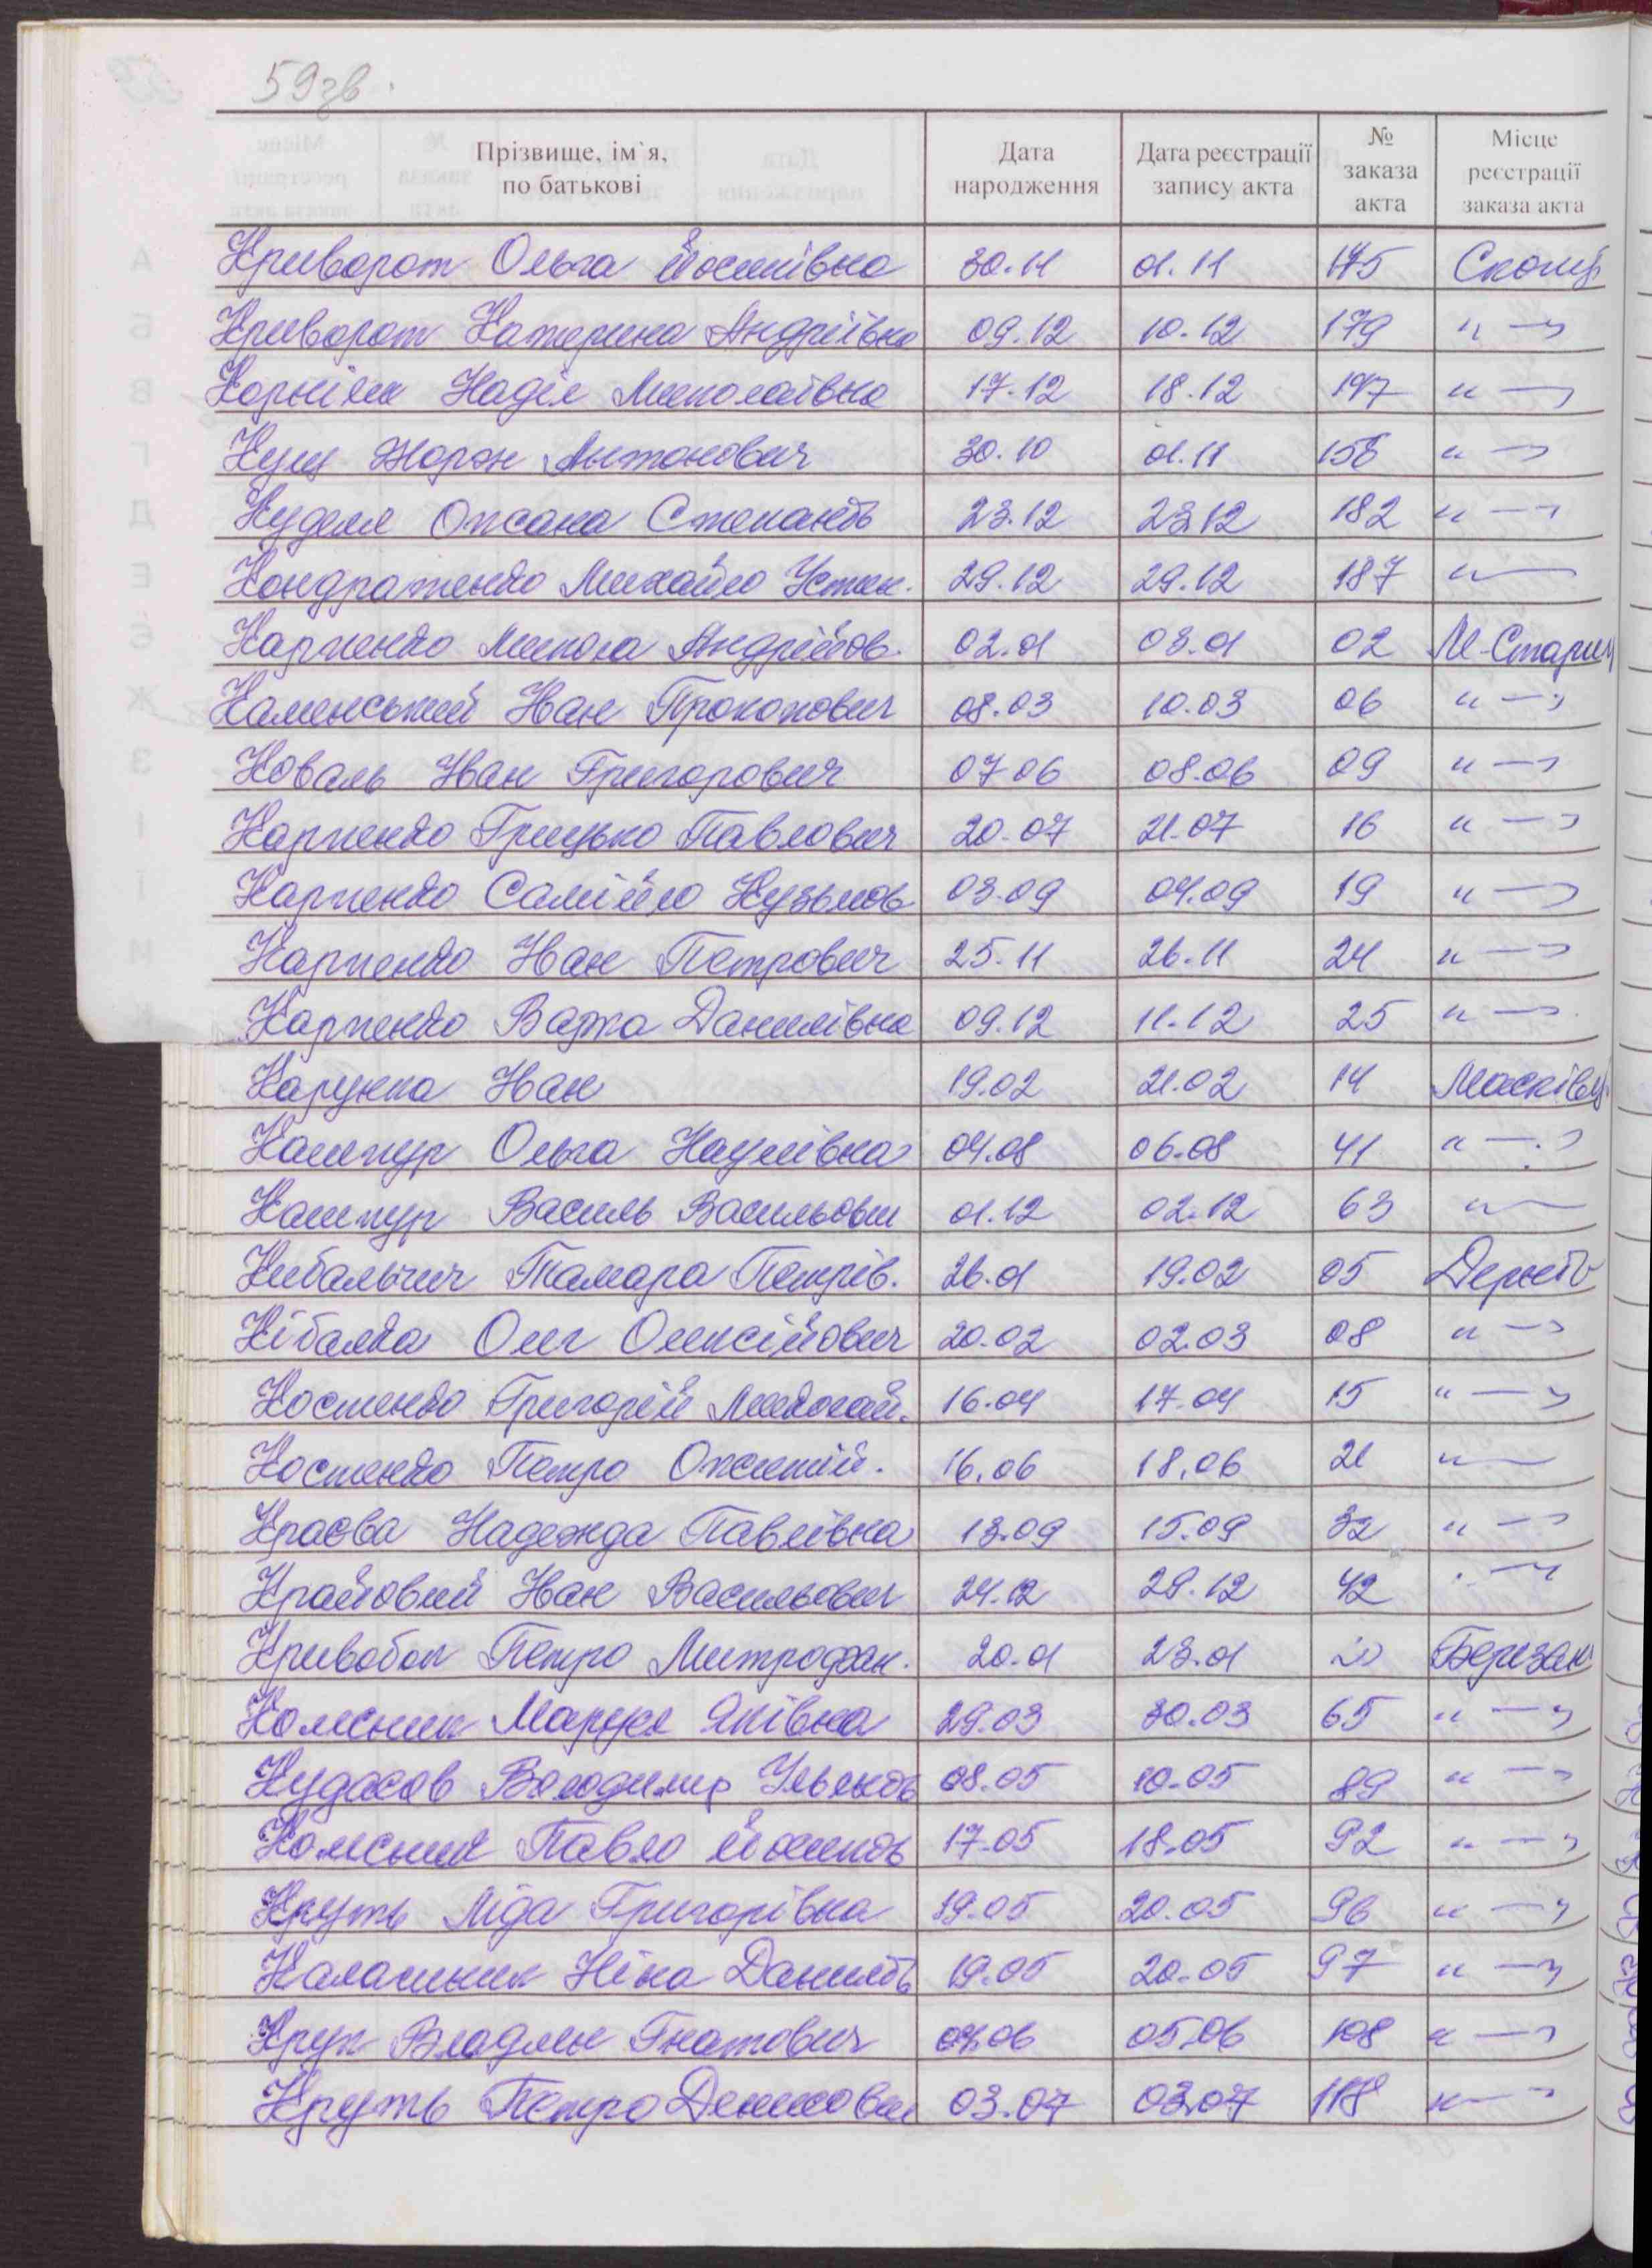 59зв.
Прізвище, ім`я, по батькові Дата народження Дата реєстрації запису акта № заказа акта Місце реєстрації заказа акта
Криворот Ольга Йосипівна 30.11 01.11 175 Скопц.
Криворот Катерина Андріївна 09.12 10.12 179 " —"
Корнієн Надія Миколаївна 17.12 18.12 177 " —"
Кущ Жорж Антонович 30.10 01.11 158 " —"
Куделя Оксана Степанів 23.12 23.12 182 " —"
Кондратенко Михайло Устин. 29.12 29.12 187 " —
Карпенко Микола Андрійов. 02.01 03.01 02 М-Стариц
Каменський Іван Прокопович 08.03 10.03 06 " —"
Коваль Іван Григорович 07 06 08.06 09 " —"
Карпенко Грицько Павлович 20.07 21.07 16 " —"
Карпенко Самійло Кузьмов. 03.09 04.09 19 " —"
Карпенко Іван Петрович 25.11 26.11 24 " —"
Карпенко Варка Данилівна 09.12 11.12 25 " —"
Карунка Іван 19.02 21.02 14 Масківц.
Кашпур Ольга Наумівна 04.08 06.08 41 " —"
Кашпур Василь Васильович 01.12 02.12 63 " —
Кибальчич Тамара Петрів. 26.01 19.02 05 Дернів
Кібалка Олег Олексійович 20.02 02.03 08 " —"
Костенко Григорій Миколай. 16.04 17.04 15 " —"
Костенко Петро 16.06 18.06 21 " —
Краєва Надежда Павлівна 13.09 15.09 32 " —"
Крайовий Іван Васильович 24.12 29.12 42 " —"
Кривобок Петро Митрофан. 20.01 23.01 Березан
Колісник Маруся Яківна 29.03 30.03 65 " —"
Кудасов Володимир Ульянов 08.05 10.05 89 " —"
Колісник Павло 17.05 18.05 92 " —"
Круть Ліда Григорівна 19.05 20.05 96 " —"
Калашник Ніна Данилів 19.05 20.05 97 " —"
Круп Владлен Гнатович 04.06 05.06 108 " —"
Круть Петро Денисович 03.07 03.07 118 " —"